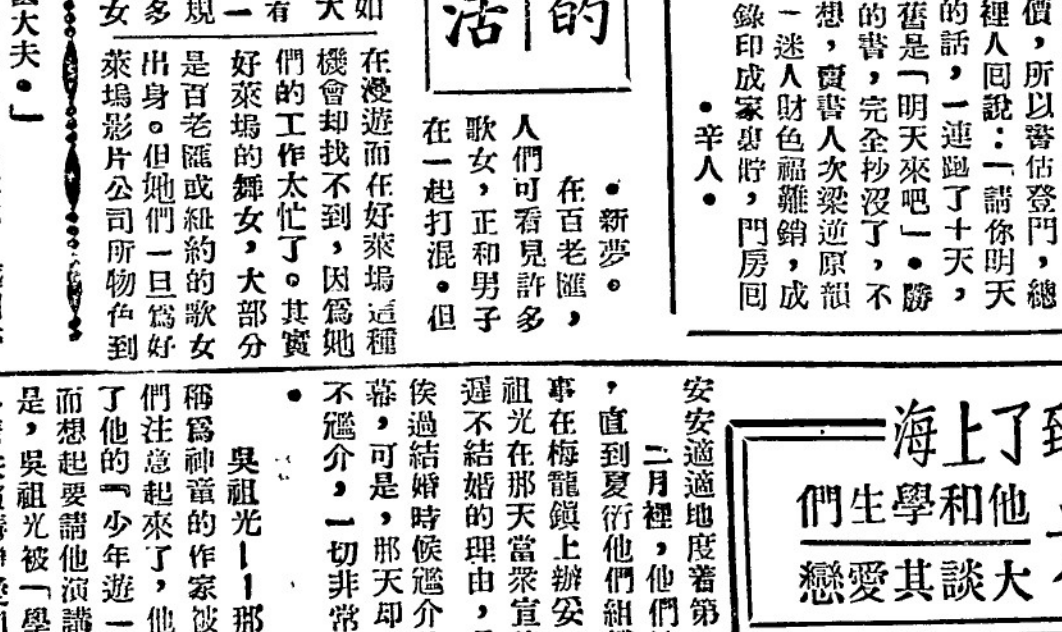 價，所以書估登門，總
裡人囘說：「請你明天
的話，一連跑了十天，
舊是「明天來吧」。勝
的書，完全抄沒了，不
想，賣書人次梁逆原韻
一迷人財色福難銷，成
錄印成家裏貯，門房囘
•辛人•
的
活
•新夢。
在百老匯，
人們可看見許多
歌女，正和男子
在一起打混。但
在漫遊而在好萊塢這種
機會却找不到，因爲她
們的工作太忙了。其實
好萊塢的舞女，大部分
是百老匯或紐約的歌女
出身。但她們一旦爲好
萊塢影片公司所物色到
如
大
有
一
規
多
女
大夫。」
了上海
他和學生們
大談其愛戀
安安適適地度着第
二月裡，他們
，直到夏衍他們組
事在梅龍鎭上辦妥
祖光在那天當衆宣
遲不結婚的理由，
俟過結婚時候尷介
幕，可是，那天却
不尷介，一切非常
•
吳祖光——那
稱爲神童的作家被
們注意起來了，他
了他的『少年遊一
而想起要請他演講
是，吳祖光被「學